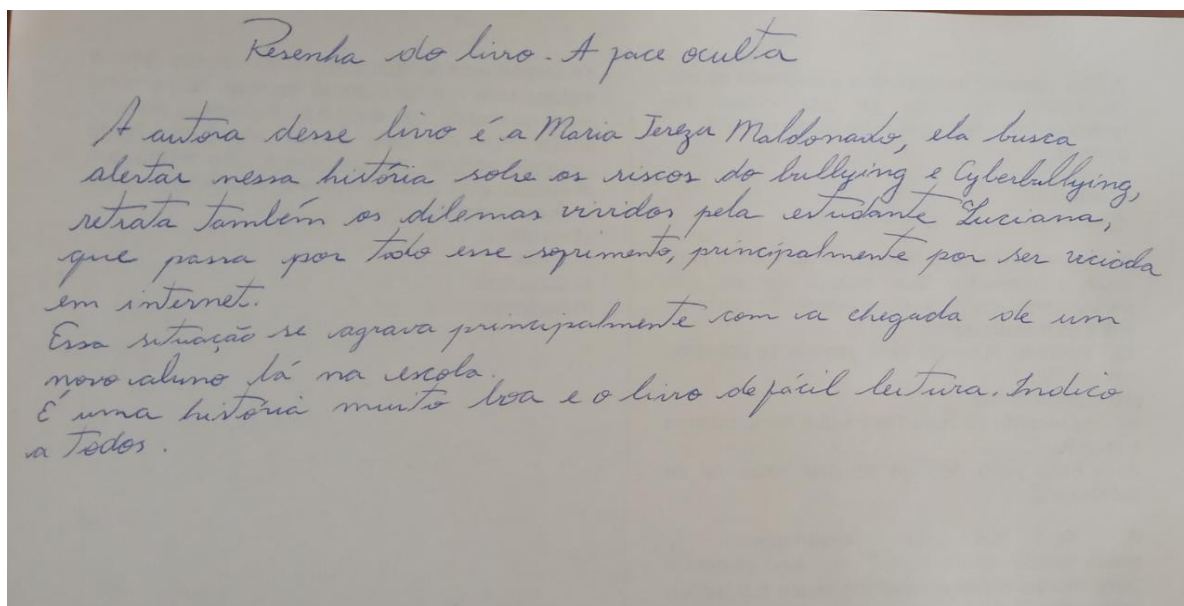 Resenha do livro - A face oculta
A autora desse livro é a Maria Tereza Maldonado, ela busca
alertar nessa história sobre os riscos do bullying e Cyberbullying,
retrata também os dilemas vividos pela estudante Luciana,
que passa por todo esse sofrimento, principalmente por ser viciada
em internet.
Essa situação se agrava principalmente com a chegada de um
novo aluno lá na escola.
É uma história muito boa e o livro de fácil leitura. Indico
a todos.